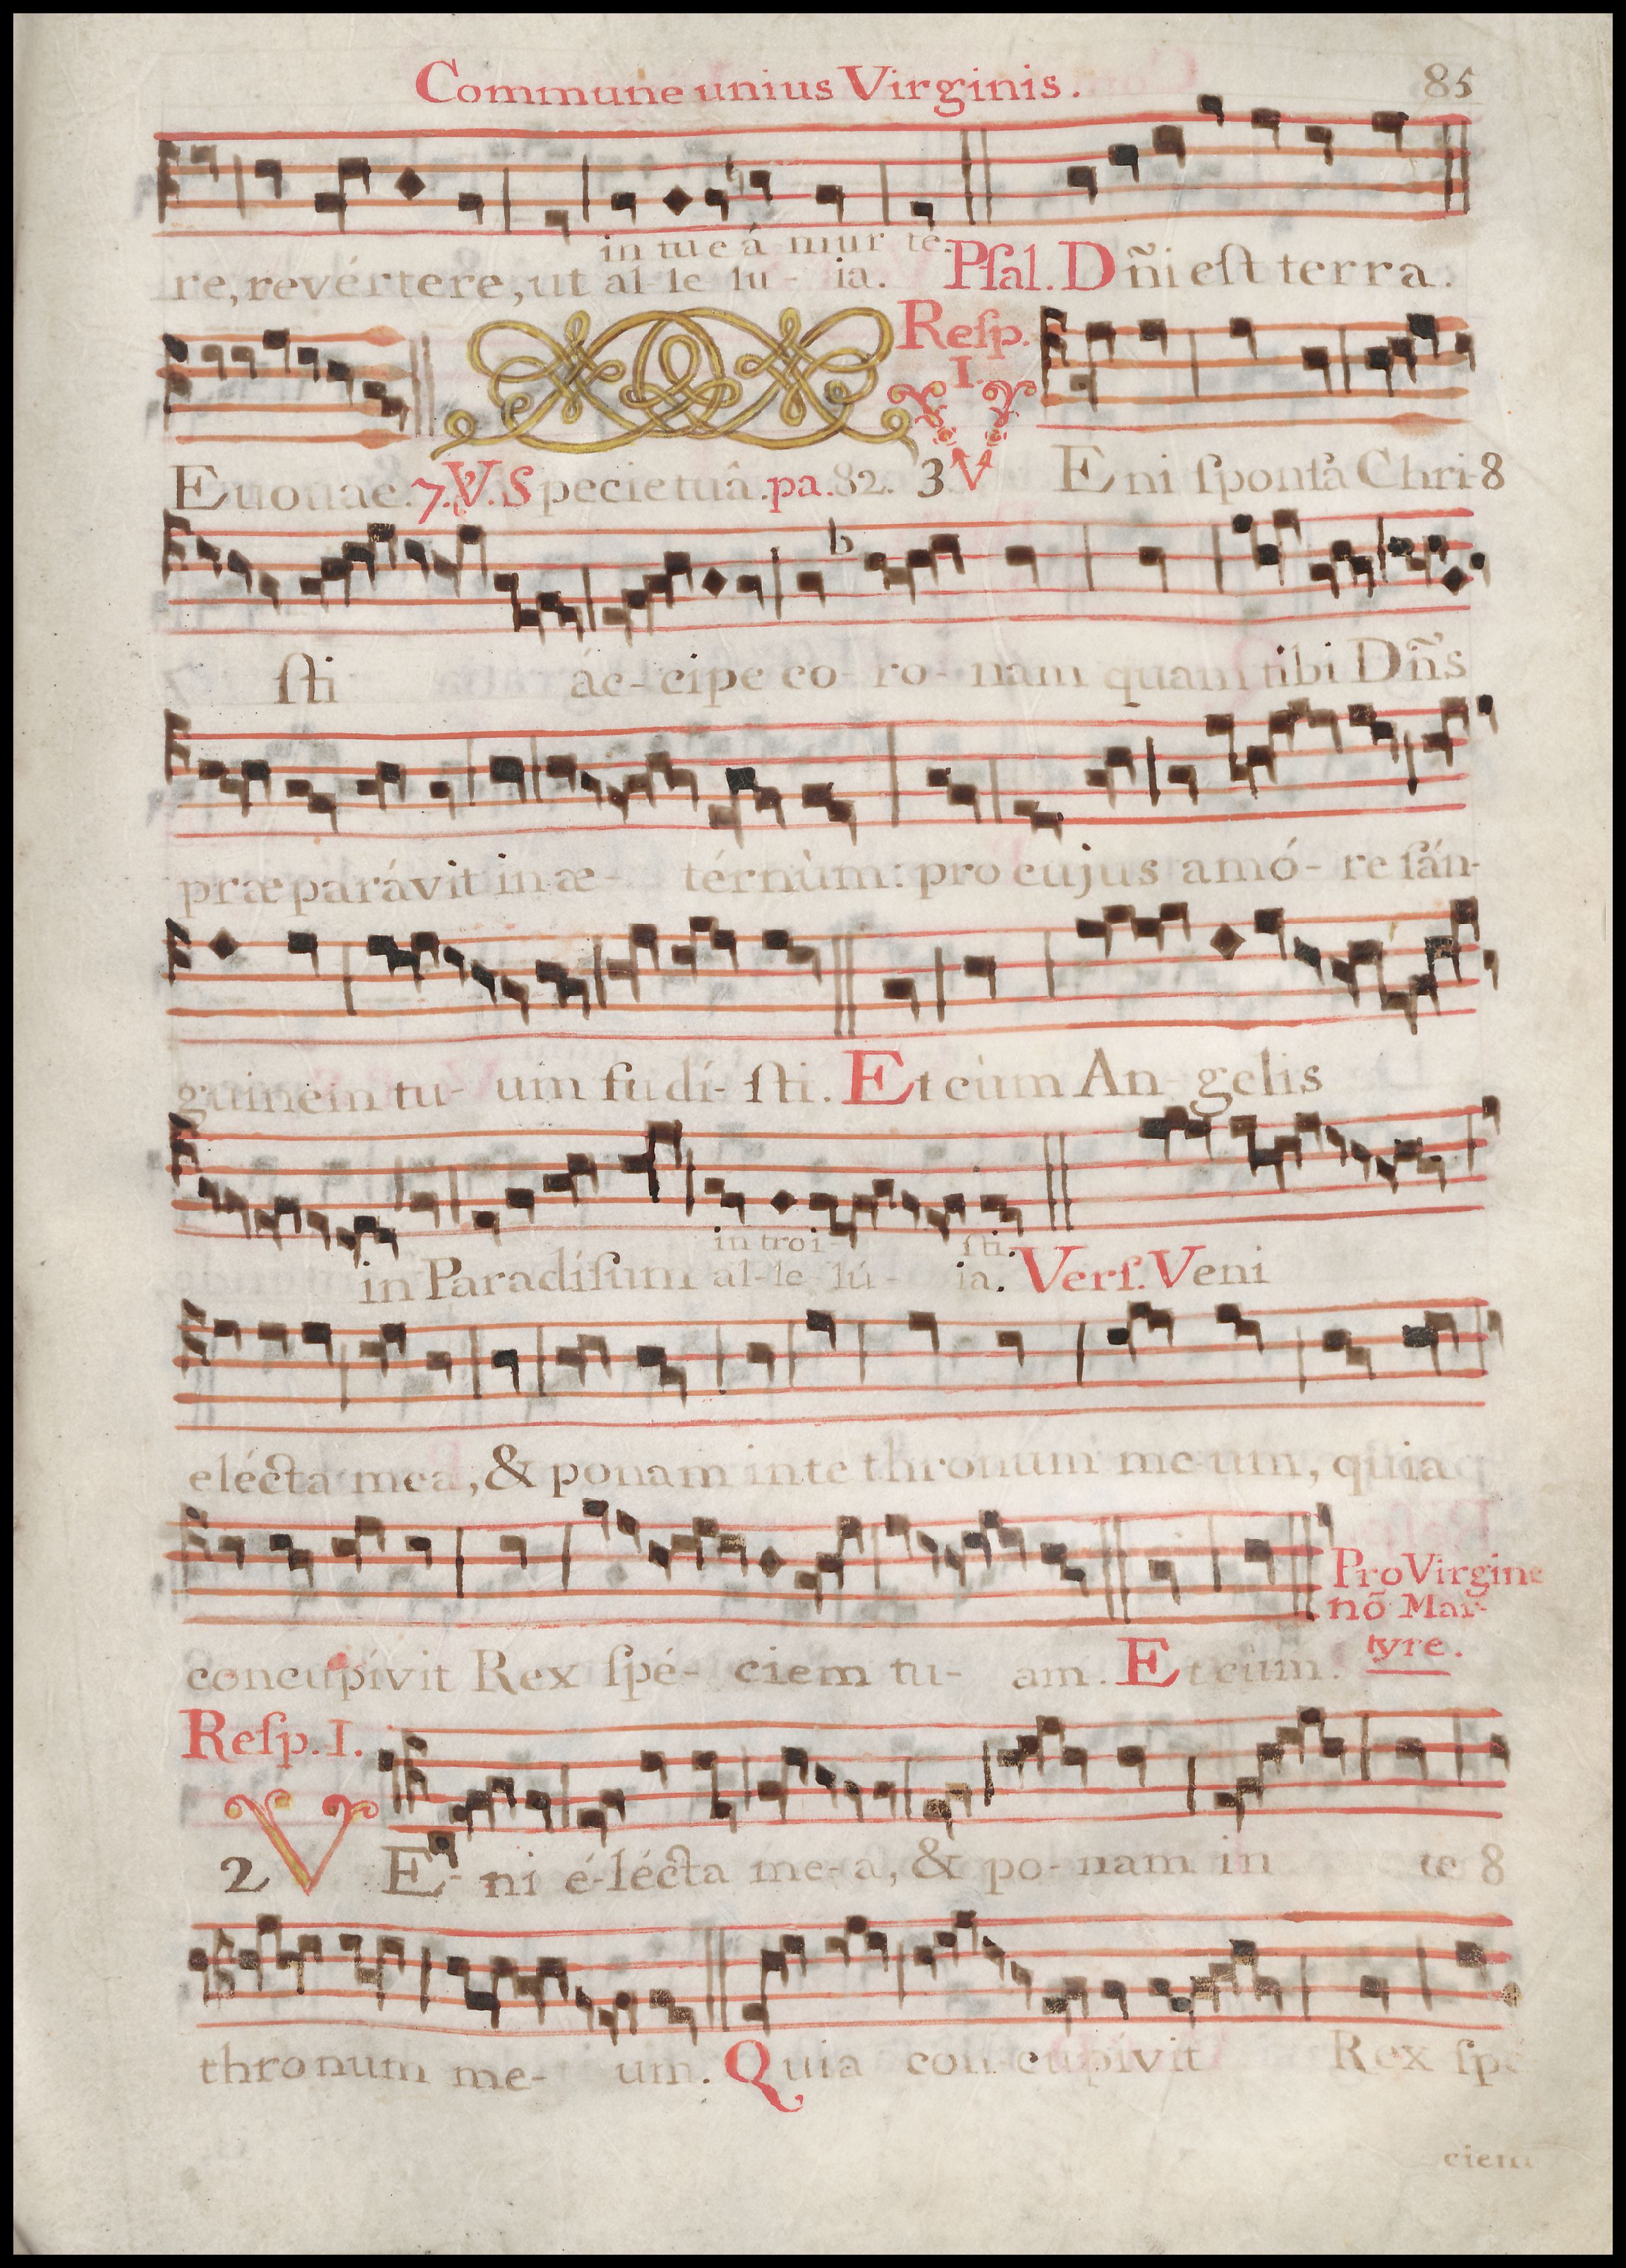 Commune unius Virginis. 85
in tue á mur te.
re, revértere, ut al-le lu- ia. Pſal. Dñi eſt terra.
Reſp.
I.
Euouae. 7. V. Specie tuâ. pa. 82. 3 V Eni ſponſa Chri- 8
ſti ác-cipe co-ro-nam quam tibi Dñs
præparávit in æ- térnùm: pro cujus amó-re ſán-
guinem tu-um fudí-ſti. Et cùm An-gelis
in troi- ſti.
in Paradiſum al-le lú- ia. Verſ. Veni
elécta mea, & ponam in te thronum me-um, quia
Pro Virgine
nõ Mar-
tyre.
concupívit Rex ſpé-ciem tu- am. Et cùm.
Reſp. I.
2 V E-ni é-lécta me-a, & po-nam in te 8
thronum me- um. Quia con-cupívit Rex ſpé
ciem